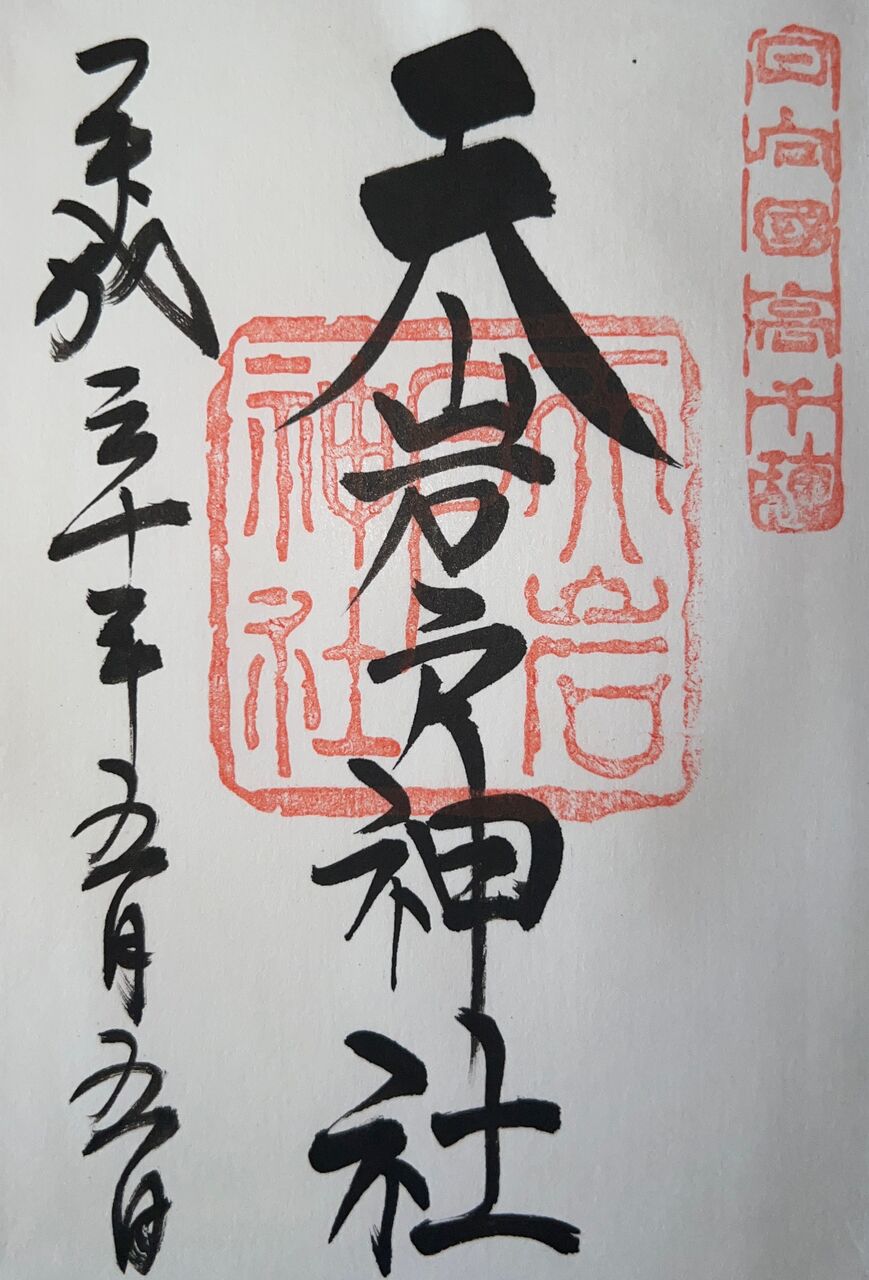 日向國高千穂
天岩戸神社
天岩戸神社
平成三十年五月五日